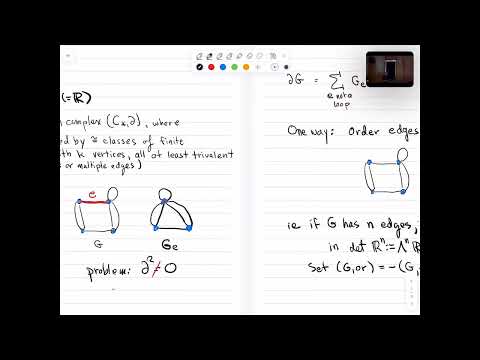 (=ℝ)
complex (C*,∂), where
by ≅ classes of finite
k vertices, all of at least trivalent
or multiple edges)
e
G
Ge
problem: ∂² ≠ 0
∂G = Σ Ge
e not a
loop
One way: Order edges
ie if G has n edges,
in det ℝⁿ := Λⁿ ℝ
Set (G,or) = -(G,